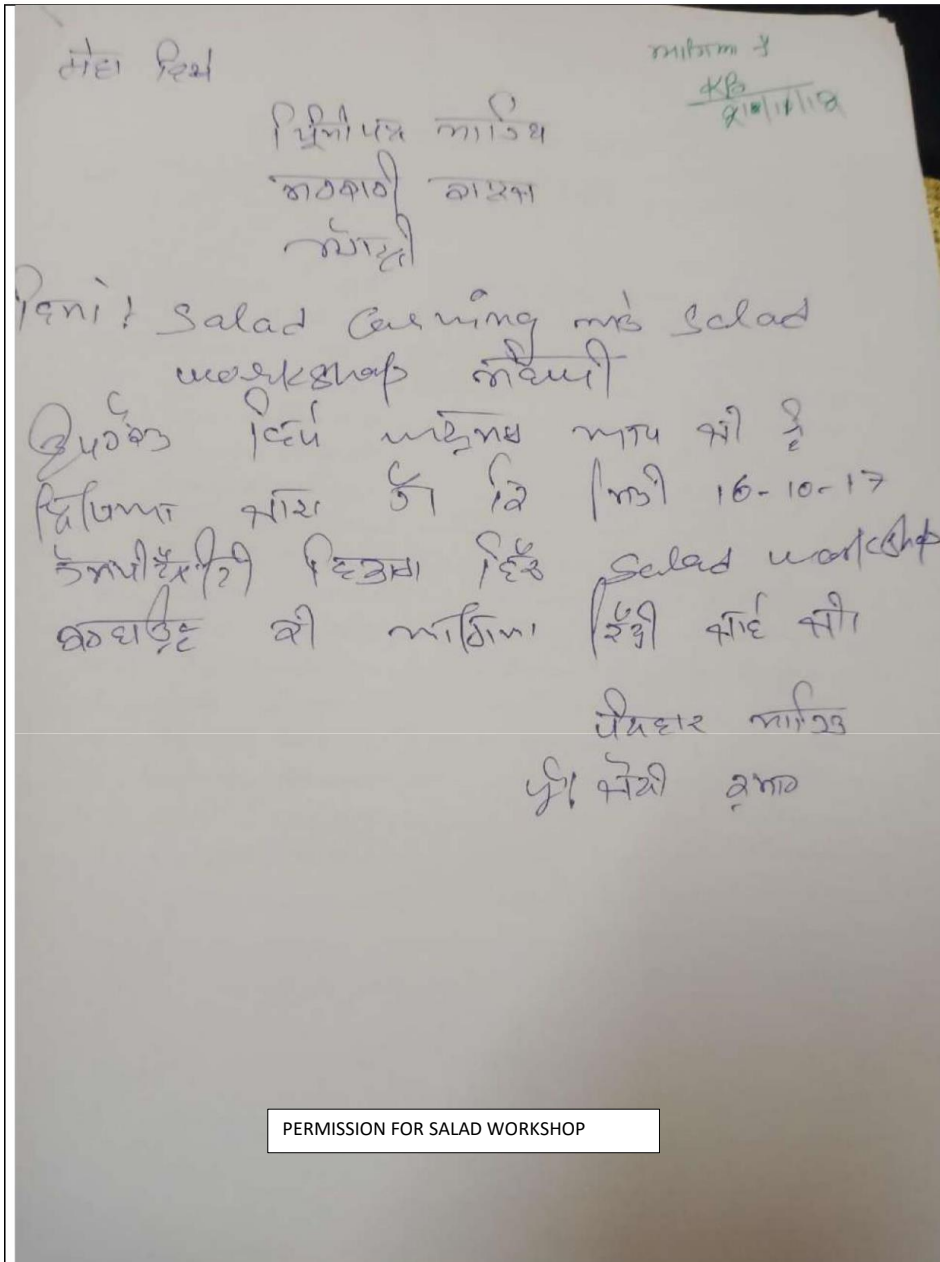 ਸੇਵਾ ਵਿਖੇ
ਆਗਿਆ ਹੈ
KB
ਪ੍ਰਿੰਸੀਪਲ ਸਾਹਿਬ
ਸਰਕਾਰੀ ਕਾਲਜ
ਵਿਸ਼ਾ: Salad Carving ਅਤੇ Salad
workshop ਸੰਬੰਧੀ
ਉਪਰੋਕਤ ਵਿਸ਼ੇ ਅਨੁਸਾਰ ਆਪ ਜੀ ਨੂੰ
ਲਿਖਿਆ ਜਾਂਦਾ ਹੈ ਕਿ ਮਿਤੀ 16-10-17
ਹੋਸਪੀਟੈਲਿਟੀ ਵਿਭਾਗ ਵਿੱਚ Salad workshop
ਕਰਵਾਉਣ ਦੀ ਆਗਿਆ ਦਿੱਤੀ ਜਾਵੇ ਜੀ।
ਧੰਨਵਾਦ ਸਾਹਿਤ
ਪ੍ਰੋ. ਕੁਮਾਰ
PERMISSION FOR SALAD WORKSHOP